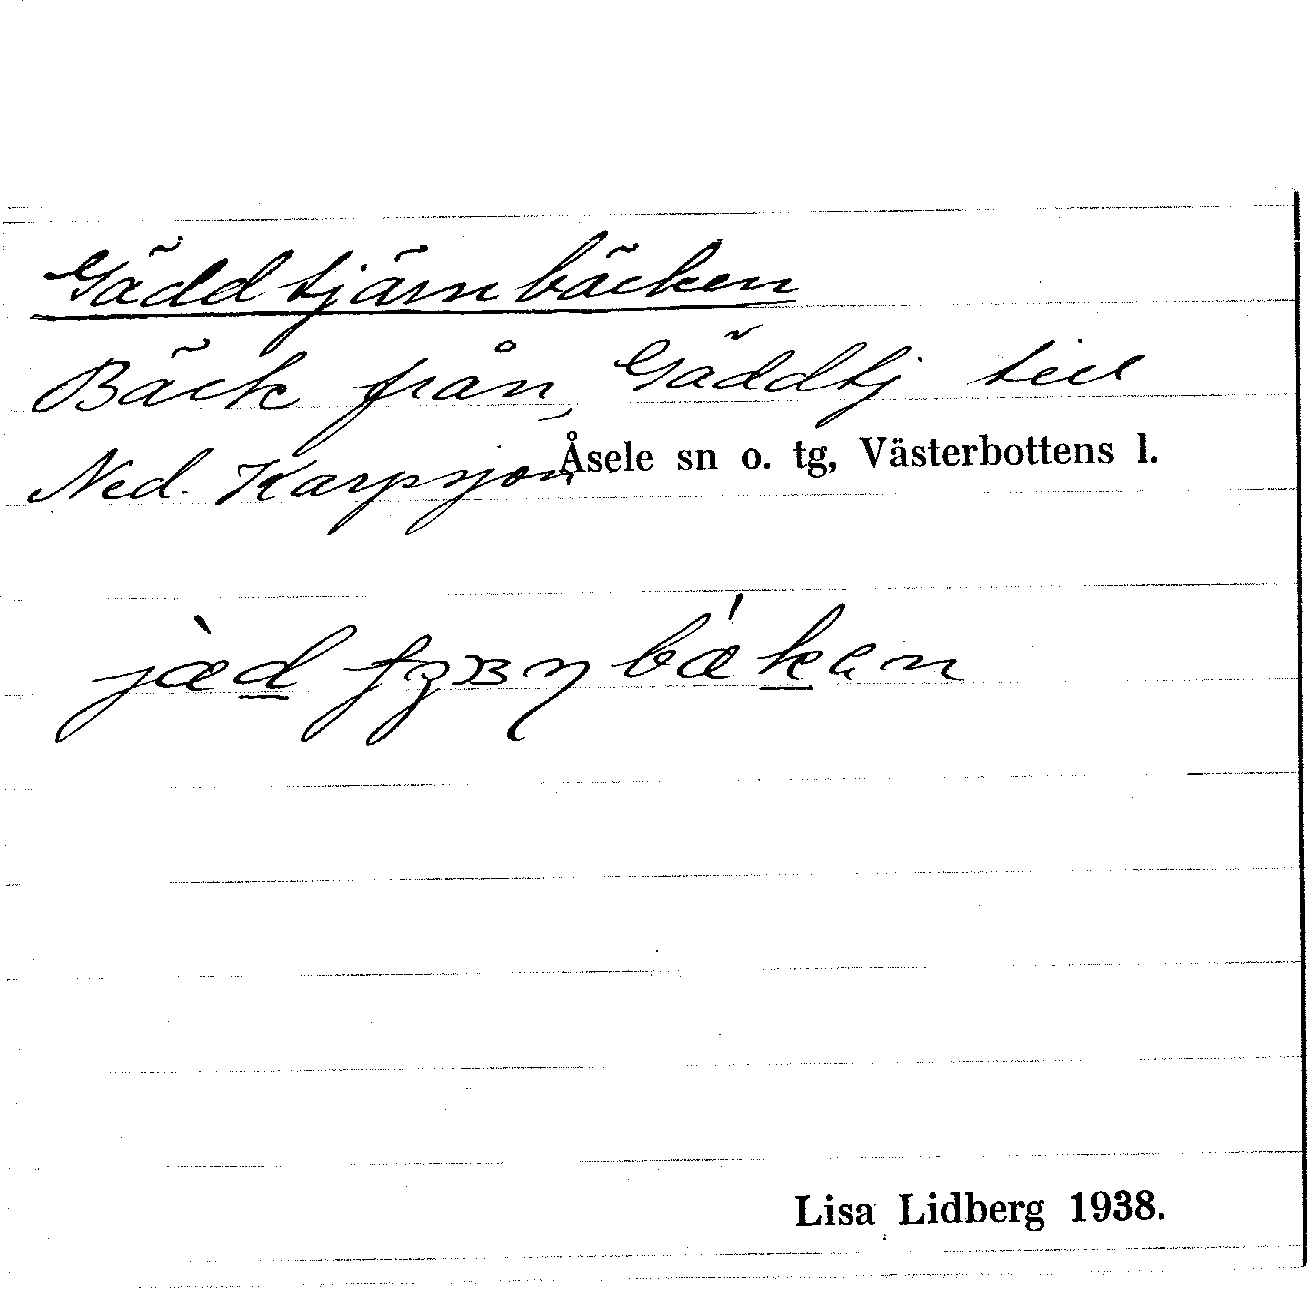 Gäddtjärnbäcken
Bäck från Gäddtj till
Ned. Karpsjön
Åsele sn o. tg, Västerbottens l.
Lisa Lidberg 1938.